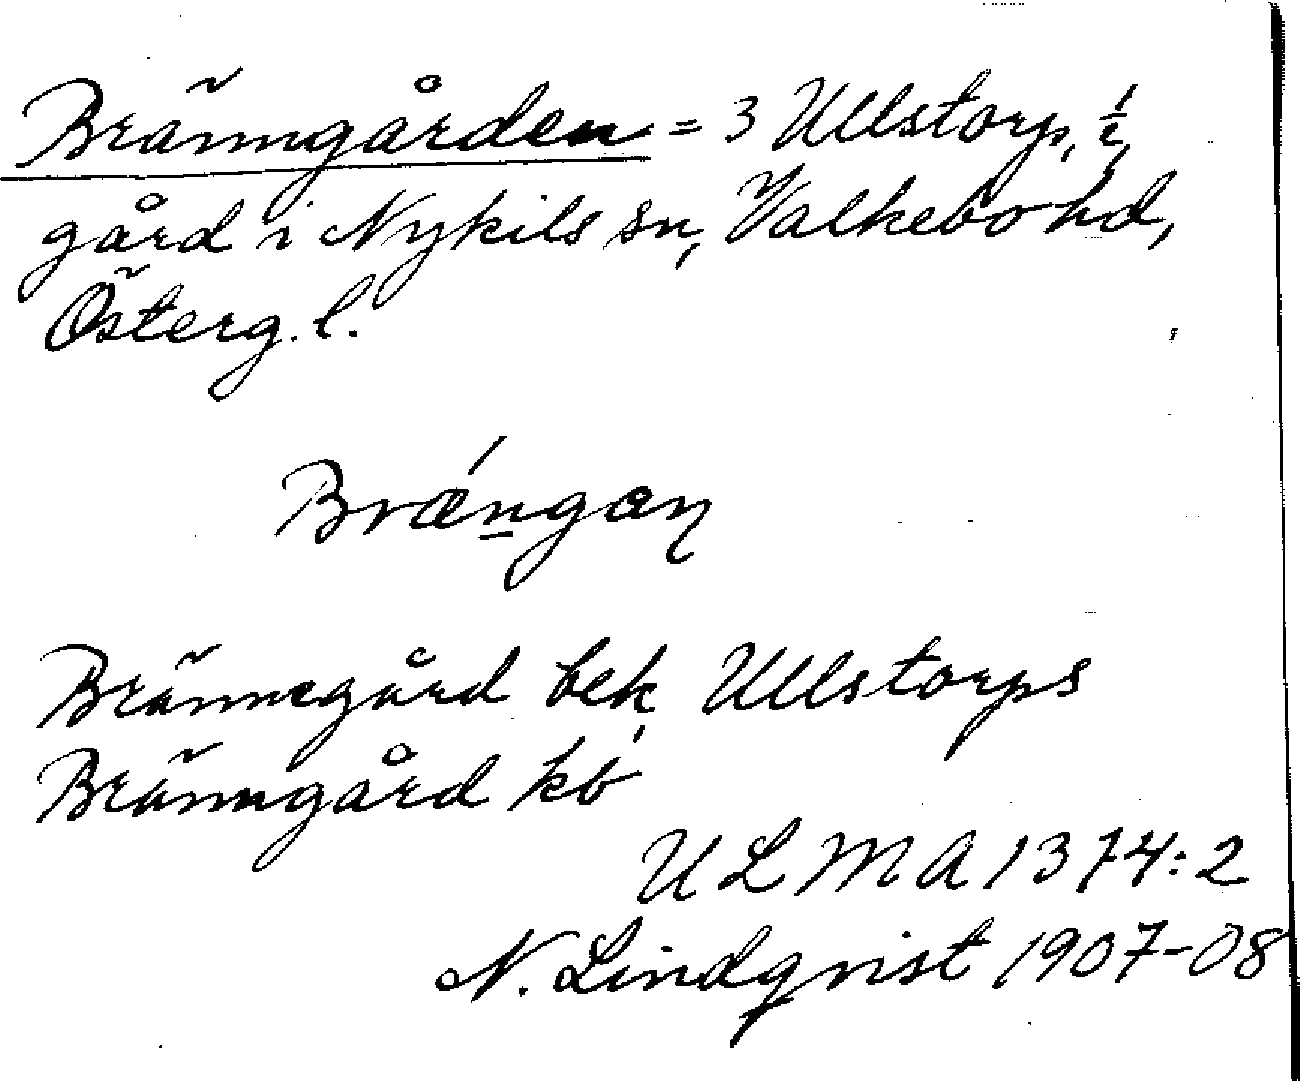 Bränngården = 3 Ullstorp, ½
gård i Nykils sn, Valkebo hd,
Österg. l.
Brǽn̠gan̡
Brännegård bek, Ullstorps
Bränngård kb
ULMA 1374:2
N. Lindqvist 1907-08